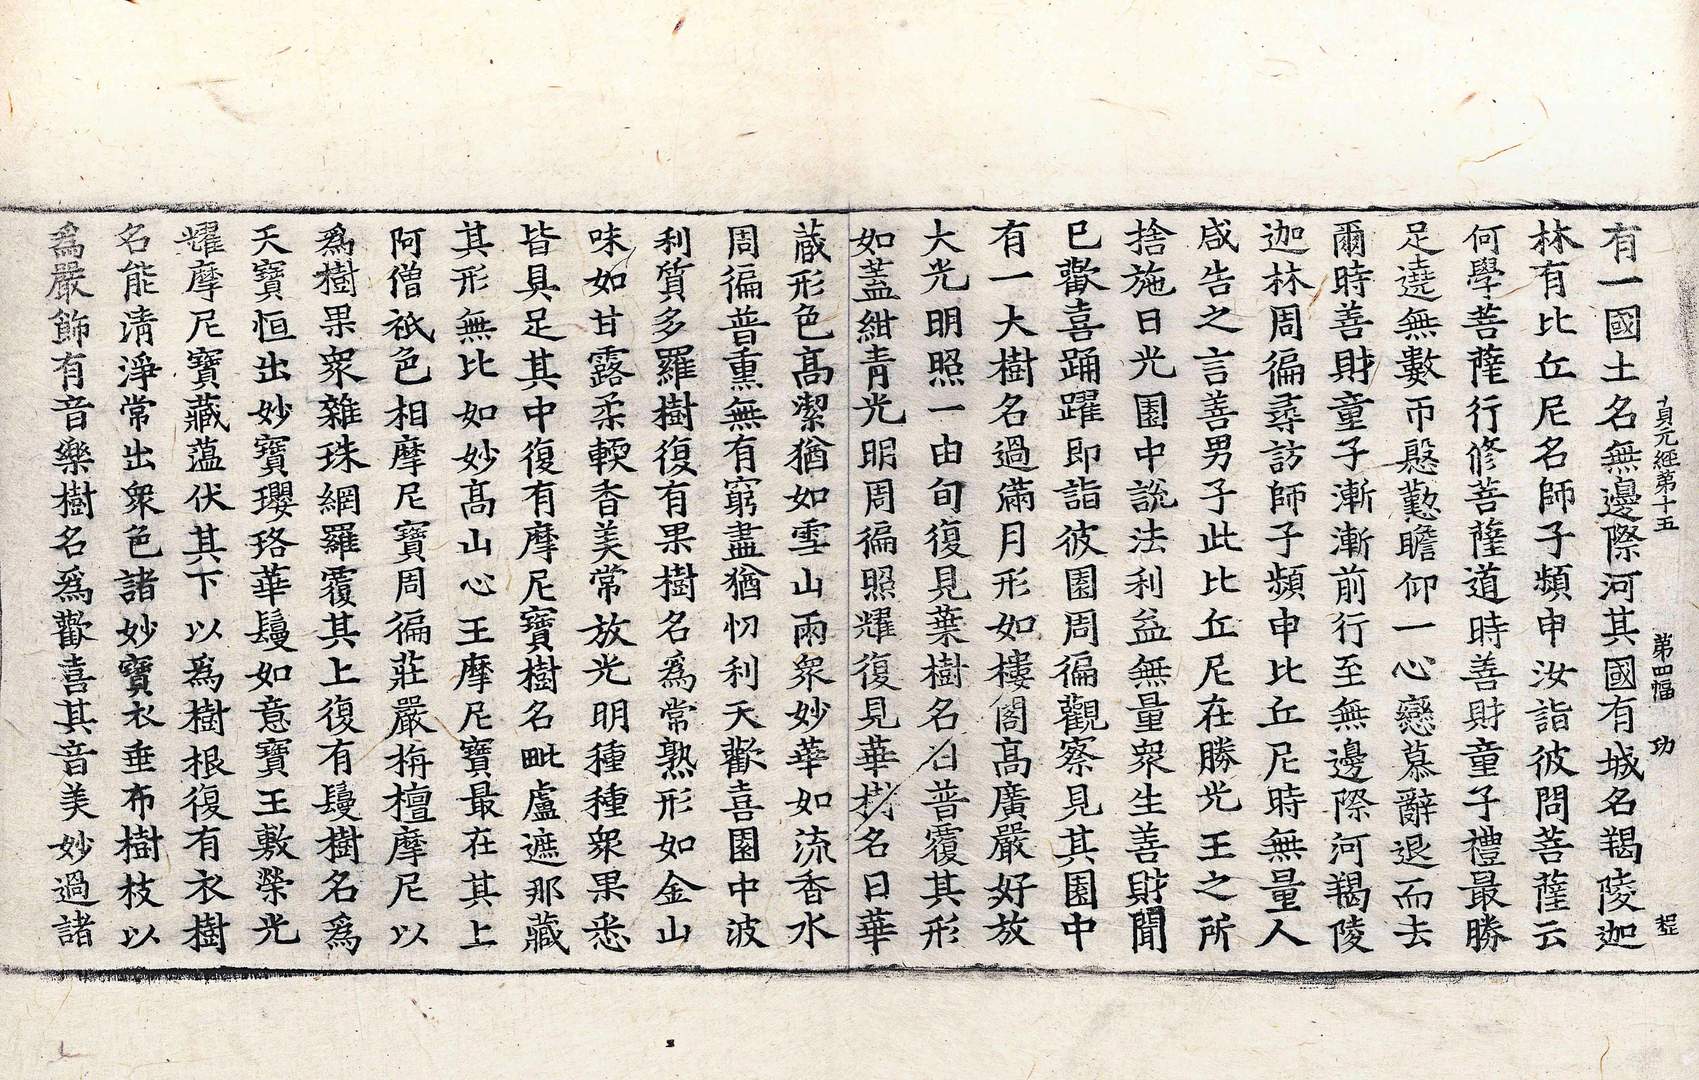 貞元經第十五 第四幅 功 程
有一國土名無邊際河其國有城名羯陵迦
林有比丘尼名師子頻申汝詣彼問菩薩云
何學菩薩行修菩薩道時善財童子禮最勝
足遶無數帀慇懃瞻仰一心戀慕辭退而去
爾時善財童子漸漸前行至無邊際河羯陵
迦林周徧尋訪師子頻申比丘尼時無量人
咸告之言善男子此比丘尼在勝光王之所
捨施日光園中說法利益無量衆生善財聞
已歡喜踊躍即詣彼園周徧觀察見其園中
有一大樹名過滿月形如樓閣高廣嚴好放
大光明照一由旬復見葉樹名曰普覆其形
如蓋紺青光明周徧照耀復見華樹名日華
藏形色高潔猶如雪山雨衆妙華如流香水
周徧普熏無有窮盡猶忉利天歡喜園中波
利質多羅樹復有果樹名為常熟形如金山
味如甘露柔輭香美常放光明種種衆果悉
皆具足其中復有摩尼寶樹名毗盧遮那藏
其形無比如妙高山心王摩尼寶最在其上
阿僧祇色相摩尼寶周徧莊嚴栴檀摩尼以
為樹果衆雜珠網羅覆其上復有鬘樹名為
天寶恒出妙寶瓔珞華鬘如意寶王敷榮光
耀摩尼寶藏薀伏其下以為樹根復有衣樹
名能清淨常出衆色諸妙寶衣垂布樹枝以
為嚴飾有音樂樹名為歡喜其音美妙過諸